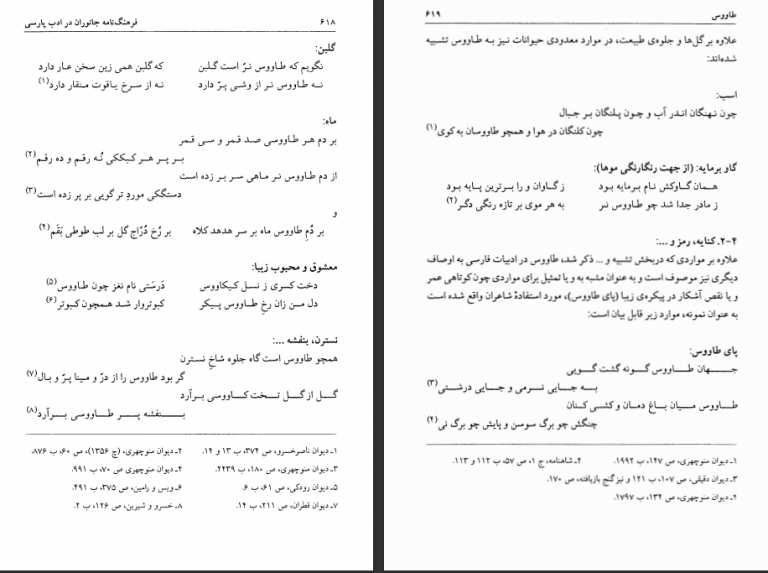 ۶۱۸ فرهنگ‌نامه جانوران در ادب پارسی
گلبن:
نگویم که طاووس نرّ است گلبن که گلبن همی زین سخن عار دارد
نه طاووس نر از وشی پرّ دارد نه از سرخ یاقوت منقار دارد(۱)
ماه:
بر دم هر طاووسی صد قمر و سی قمر
بر پر هر کبککی نُه رقم و ده رقم(۲)
از دم طاووس نر ماهی سر بر زده است
دستگکی موردِ تر گویی بر پر زده است(۳)
و
بر دُمِ طاووس ماه بر سر هدهد کلاه بر رُخ دُرّاج گل بر لب طوطی بَقَم(۴)
معشوق و محبوب زیبا:
دخت کسری ز نسل کیکاوس دَرستی نام نغز چون طاوس(۵)
دل من زان رخِ طاووس پیکر کبوتروار شد همچون کبوتر(۶)
نسترن، بنفشه ...:
همچو طاووس است گاه جلوه شاخ نسترن
گر بود طاووس را از درّ و مینا پرّ و بال(۷)
گل از گل تخت کاووسی برآرد
بنفشه پر طاووسی برآرد(۸)
۱ـ دیوان ناصرخسرو، ص ۳۷۴، ب ۱۳ و ۱۴. ۲ـ دیوان منوچهری، (چ ۱۳۵۶)، ص ۶۰، ب ۸۷۶.
۳ـ دیوان منوچهری ص ۱۸۰، ب ۲۴۳۹. ۴ـ دیوان منوچهری ص ۷۰، ب ۹۹۱.
۵ـ دیوان رودکی، ص ۶۱، ب ۶. ۶ـ ویس و رامین، ص ۳۷۵، ب ۴۹۱.
۷ـ دیوان قطران، ص ۲۱۱، ب ۱۴. ۸ـ خسرو و شیرین، ص ۱۲۶، ب ۲.
طاووس ۶۱۹
علاوه بر گل‌ها و جلوه‌ی طبیعت، در موارد معدودی حیوانات نیز به طاووس تشبیه
شده‌اند:
اسب:
چون نهنگان اندر آب و چون پلنگان بر جبال
چون کلنگان در هوا و همچو طاووسان به کوی(۱)
گاو برمایه: (از جهت رنگارنگی موها):
همان گاوکش نام برمایه بود ز گاوان و را برترین پایه بود
ز مادر جدا شد چو طاوس نر به هر موی بر تازه رنگی دگر(۲)
۲-۴. کنایه، رمز و ...:
علاوه بر مواردی که دربخش تشبیه و ... ذکر شد، طاووس در ادبیات فارسی به اوصاف
دیگری نیز موصوف است و به عنوان مشبه به و یا تمثیل برای مواردی چون کوتاهی عمر
و یا نقص آشکار در پیکره‌ی زیبا (پای طاوس)، مورد استفادهٔ شاعران واقع شده است
به عنوان نمونه، موارد زیر قابل بیان است:
پای طاووس:
جهان طاووس گونه گشت گویی
به جایی نرمی و جایی درشتی(۳)
طاووس میان باغ دمان و کشی کنان
چنگش چو برگ سوسن و پایش چو برگ نی(۴)
۱ـ دیوان منوچهری، ص ۱۴۷، ب ۱۹۹۲. ۲ـ شاهنامه، ج ۱، ص ۵۷، ب ۱۱۲ و ۱۱۳.
۳ـ دیوان دقیقی، ص ۱۰۷، ب ۱۲۱ و نیز گنج بازیافته، ص ۱۷۰.
۴ـ دیوان منوچهری ص ۱۳۴، ب ۱۷۹۷.